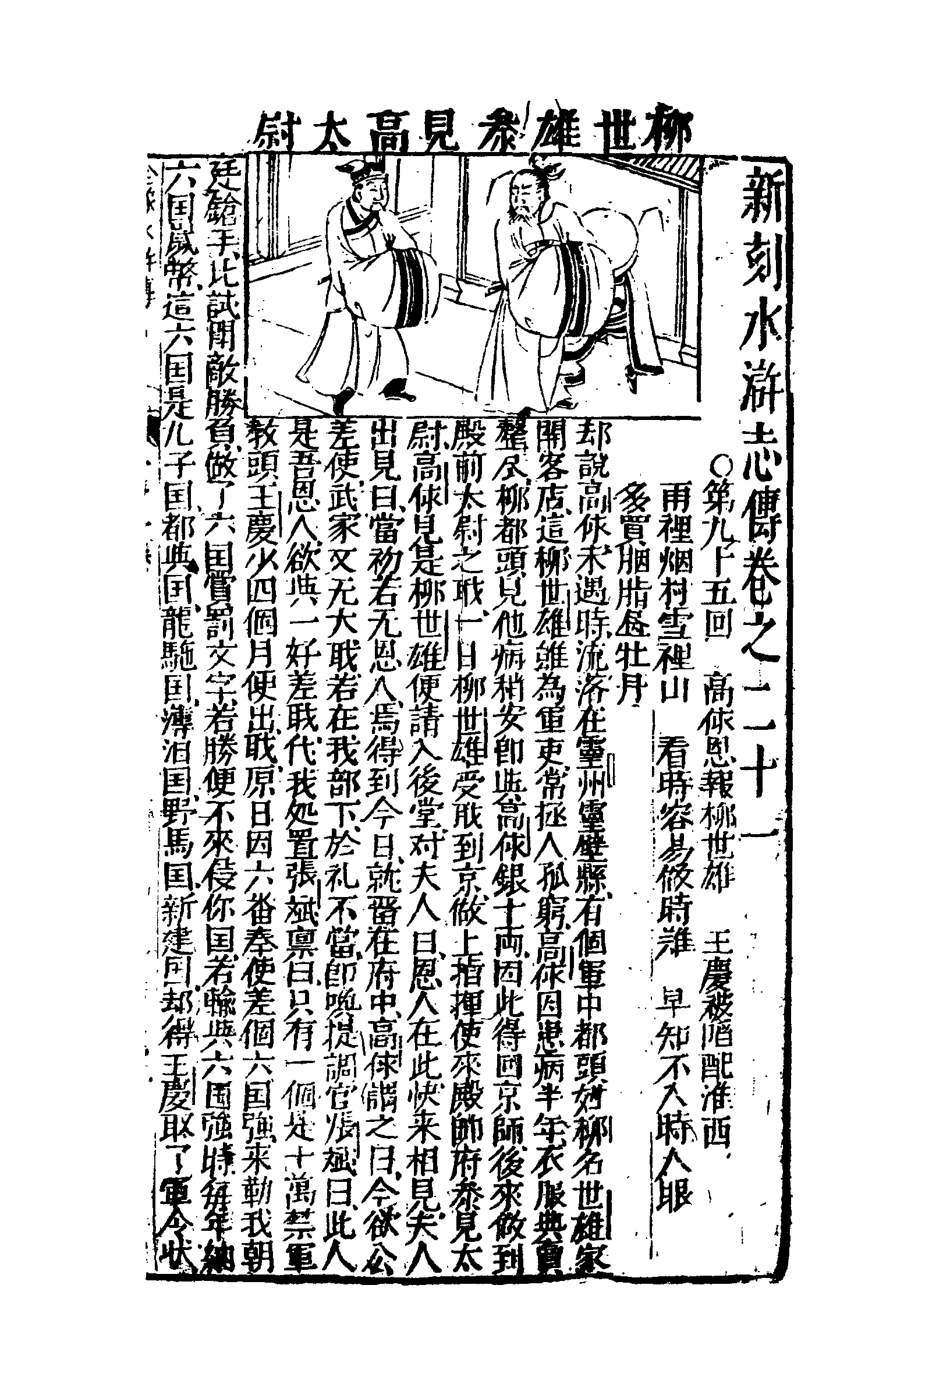 柳世雄叅見高太尉
新刻水滸志傳卷之二十一
○第九十五回　高俅恩報柳世雄　王慶被陷配淮西
雨裡烟村雪裡山　看時容易做時難　早知不入時人眼
多買胭脂画牡丹
却説高俅未遇時流落在靈州靈壁縣有個軍中都頭姓柳名世雄家
開客店這柳世雄雖為軍吏常拯人孤窮高俅因患病半年衣服典賣
罄尽柳都頭見他病稍安即與高俅銀十両因此得囬京師後來做到
殿前太尉之戢一日柳世雄受戢到京做上指揮使來殿帥府叅見太
尉高俅見是柳世雄便請入後堂对夫人曰恩人在此快来相見夫人
出見曰當初若无恩人焉得到今日就畄在府中高俅謂之曰今欲公
差使武家又无大戢若在我部下於礼不當即喚提調官張斌曰此人
是吾恩人欲與一好差戢代我処置張斌禀曰只有一個是十萬禁軍
教頭王慶少四個月便出戢原日因六畨奉使差個六国強来勒我朝
廷鎗手比試閗敵勝負做了六国賞罰文字若勝便不來侵你国若輸與六国強時每年納
六国歲幣這六国是九子国都與国龍駞国漙洎国野馬国新建国却得王慶取了軍令状